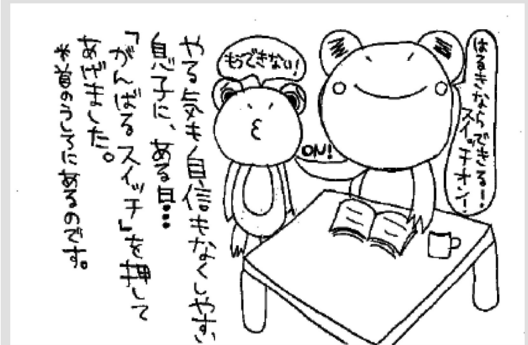 はるきならできる!
スイッチオン!
もうできない!
ON!
やる気も自信もなくしやすい
息子に、ある日…
「がんばるスイッチ」を押して
あげました。
*首のうしろにあるのです。